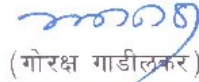 (गोरक्ष गाडीलकर)